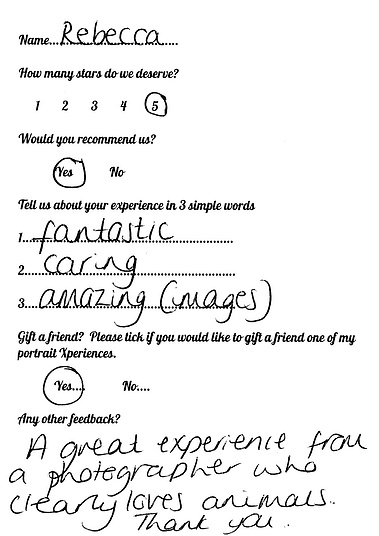 Name...Rebecca....
How many stars do we deserve?
1 2 3 4 5
Would you recommend us?
Yes No
Tell us about your experience in 3 simple words
1....fantastic..............
2....caring....................
3....amazing (images)
Gift a friend? Please tick if you would like to gift a friend one of my
portrait Xperiences.
Yes.... No....
Any other feedback?
A great experience from
a photographer who
clearly loves animals.
Thank you.